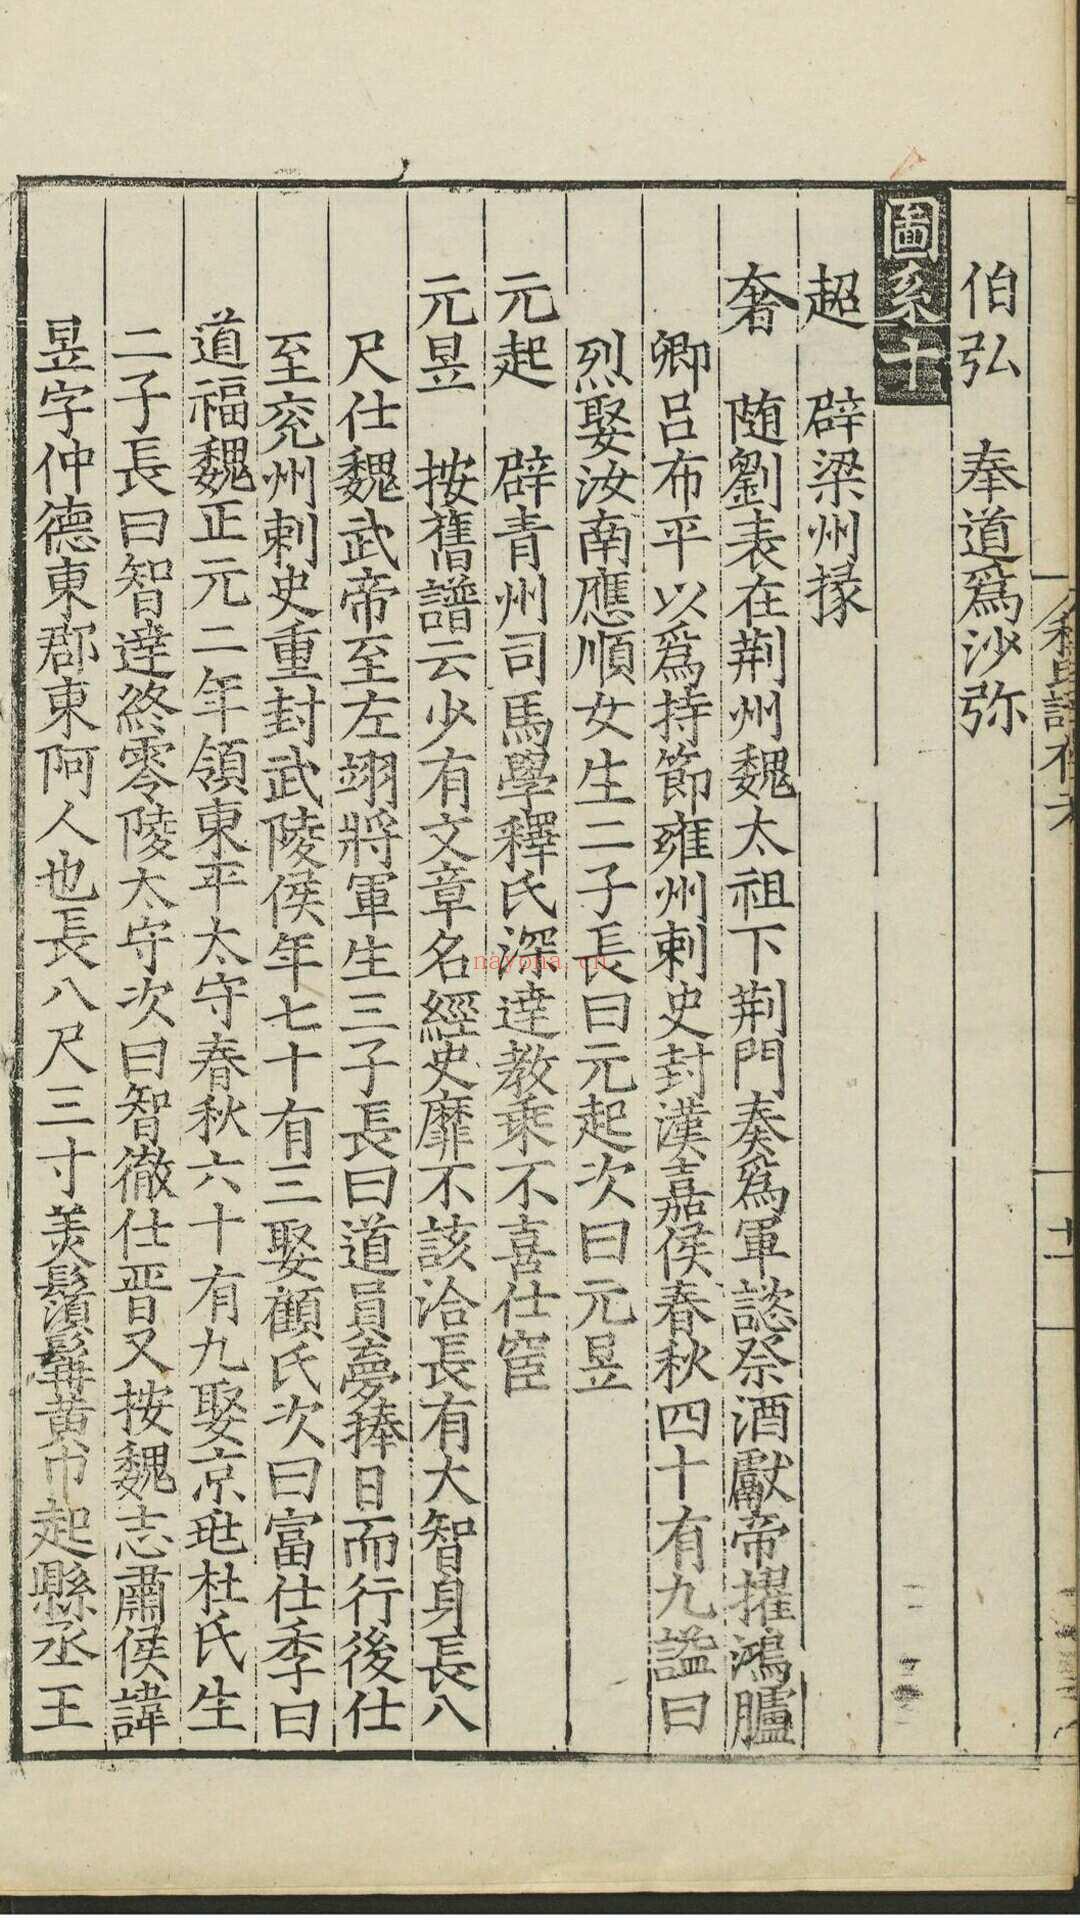 伯弘　奉道爲沙弥
圖系十
超　辟梁州掾
奢　随劉表在荆州魏太祖下荆門奏爲軍諮祭酒獻帝擢鴻臚
卿吕布平以爲持節雍州刺史封漢嘉侯春秋四十有九謚曰
烈娶汝南應順女生二子長曰元起次曰元昱
元起　辟青州司馬學釋氏深達教乘不喜仕宦
元昱　按舊譜云少有文章名經史靡不該洽長有大智身長八
尺仕魏武帝至左翊將軍生三子長曰道員夢捧日而行後仕
至兖州刺史重封武陵侯年七十有三娶顧氏次曰富仕季曰
道福魏正元二年領東平太守春秋六十有九娶京兆杜氏生
二子長曰智達終零陵太守次曰智徹仕晋又按魏志肅侯諱
昱字仲德東郡東阿人也長八尺三寸美鬚髯黄巾起縣丞王
nayona.cn